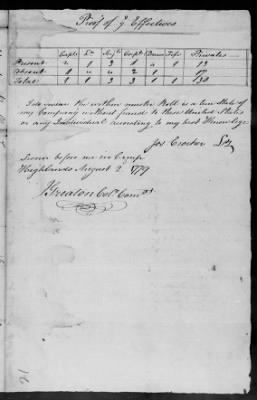 Proof of ye Effectives
Capts Lts Serjts Corpls Drum Fife Privates
Present 1 3 1 1 13
Absent 1 2 1 17
Total 1 1 3 3 1 1 30
I do swear the within muster Roll is a true State of
my Company without fraud to these United States
or any Individual according to my best Knowledge
Jos Crocker
Sworn before me in Camp
Highlands August 2d 1779
J Greaton Col. Comdt